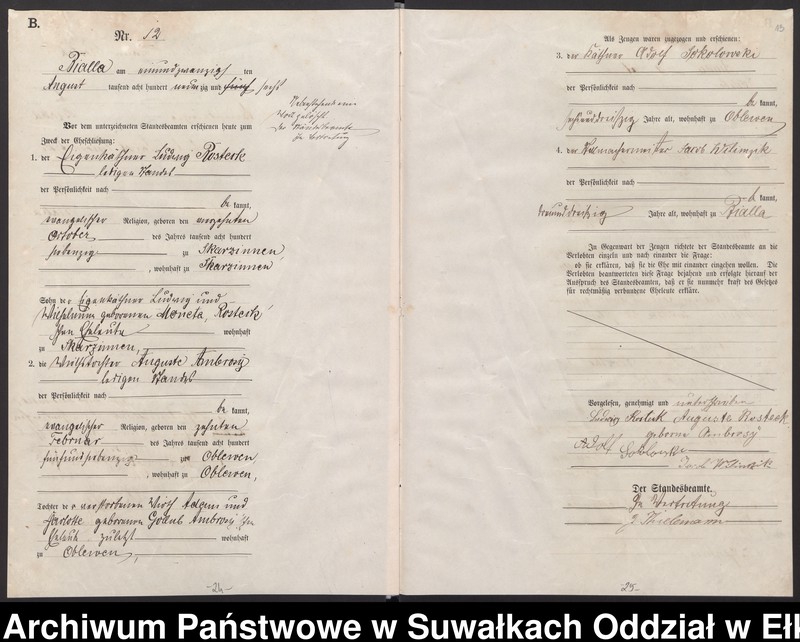 B.
Nr. 12
Bialla am einundzwanzigsten
August tausend acht hundert neunzig und fünf sechs
Vor dem unterzeichneten Standesbeamten erschienen heute zum
Zweck der Eheschließung:
1. der Eigenkäthner Ludwig Rosteck
ledigen Standes
der Persönlichkeit nach
be kannt,
evangelischer Religion, geboren den vierzehnten
October des Jahres tausend acht hundert
siebenzig zu Skarzinnen,
, wohnhaft zu Skarzinnen
Sohn der Eigenkäthner Ludwig und
Wilhelmine geborenen Moneta, Rosteck
schen Eheleute wohnhaft
zu Skarzinnen,
2. die Wirthstochter Auguste Ambrosy
ledigen Standes
der Persönlichkeit nach
be kannt,
evangelischer Religion, geboren den zehnten
Februar des Jahres tausend acht hundert
fünfundsiebenzig zu Oblewen,
, wohnhaft zu Oblewen,
Tochter der verstorbenen Wirth Adam und
Charlotte geborenen Ambrosy schen
Eheleute zuletzt wohnhaft
zu Oblewen,
-24-
13
Als Zeugen waren zugezogen und erschienen:
3. der Käthner Adolf Sokolowski
der Persönlichkeit nach
be kannt,
sechsunddreißig Jahre alt, wohnhaft zu Oblewen
4. der Jacob
der Persönlichkeit nach
be kannt,
dreiunddreißig Jahre alt, wohnhaft zu Bialla
In Gegenwart der Zeugen richtete der Standesbeamte an die
Verlobten einzeln und nach einander die Frage:
ob sie erklären, daß sie die Ehe mit einander eingehen wollen. Die
Verlobten beantworteten diese Frage bejahend und erfolgte hierauf der
Ausspruch des Standesbeamten, daß er sie nunmehr kraft des Gesetzes
für rechtmäßig verbundene Eheleute erkläre.
Vorgelesen, genehmigt und unterschrieben
Ludwig Rosteck Auguste Rosteck
geborne Ambrosy
Adolf Sokolowski
Der Standesbeamte.
In Vertretung
Thielemann
-25-
Archiwum Państwowe w Suwałkach Oddział w Eł